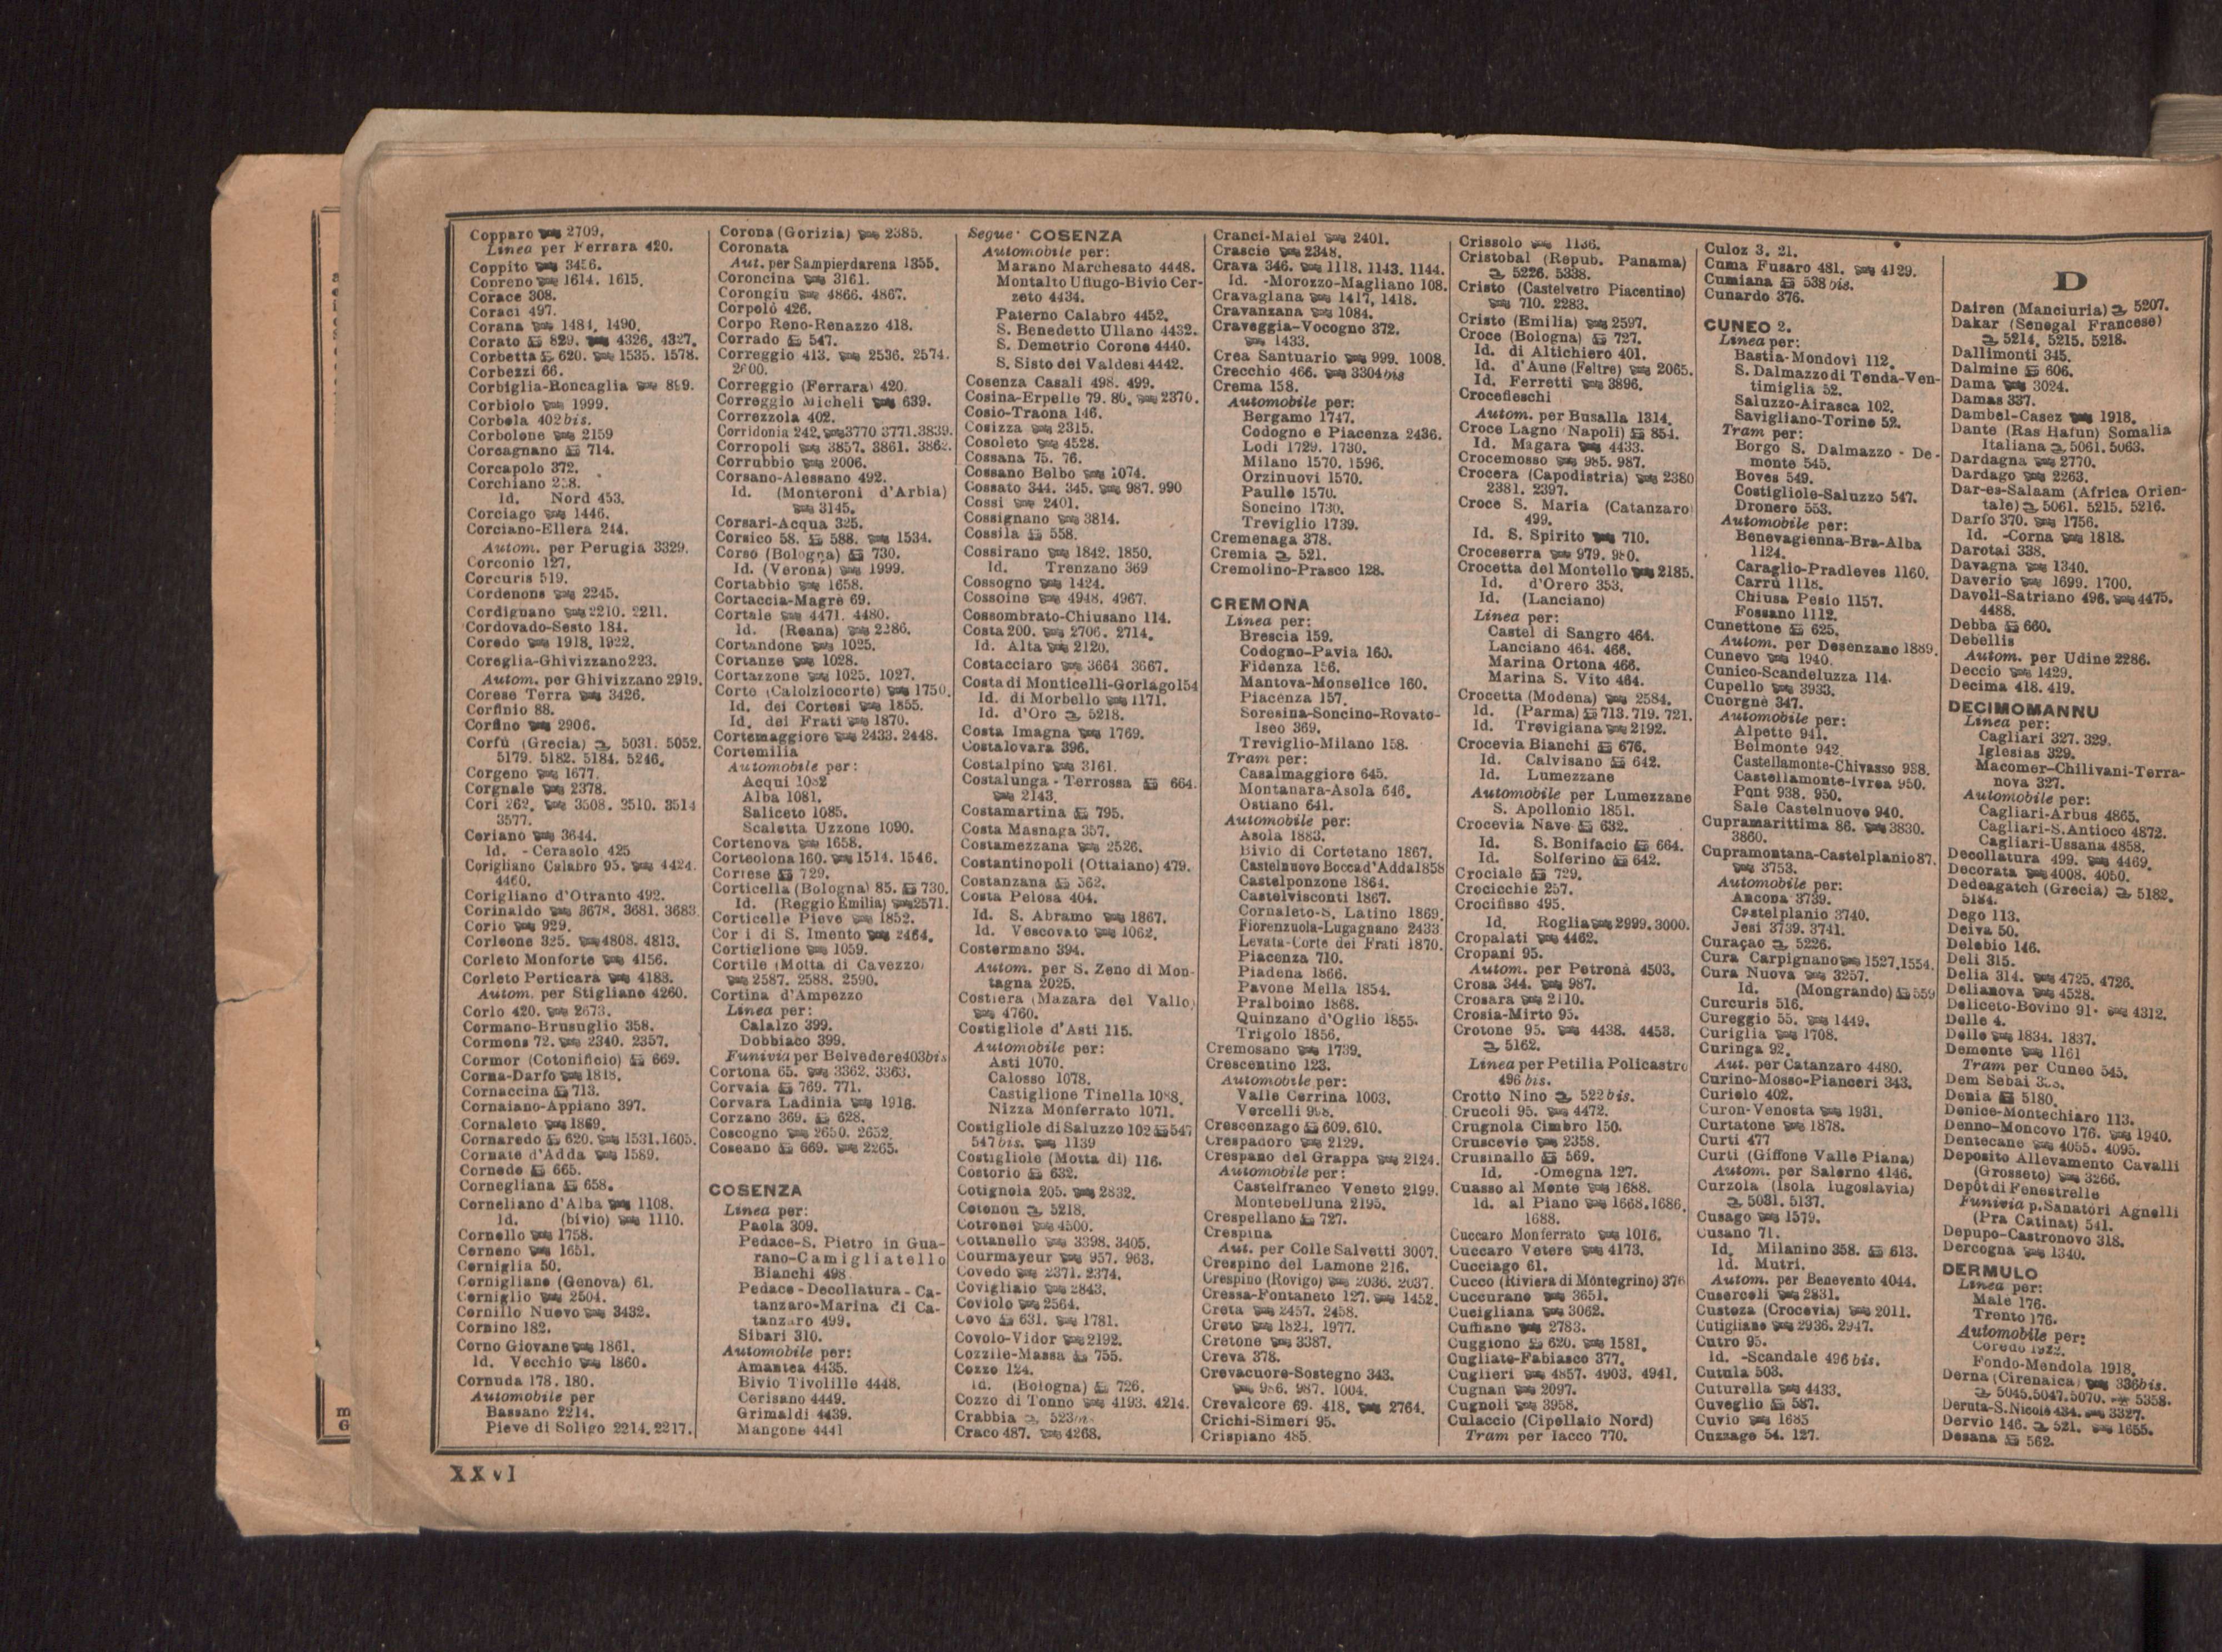 Copparo 2709.
Linea per Ferrara 420.
Coppito 3456.
Copreno 1614. 1615.
Corace 308.
Coraci 497.
Corana 1484, 1490.
Corato 829. 4326, 4327.
Corbetta 620. 1535. 1578.
Corbezzi 66.
Corbiglia-Roncaglia 899.
Corbiolo 1999.
Corbola 402 bis.
Corbolone 2159
Corcagnano 714.
Corcapolo 372.
Corchiano
Id. Nord 453.
Corciago 1446.
Corciano-Ellera 244.
Autom. per Perugia 3329.
Corconio 127.
Corcuris 519.
Cordenons 2245.
Cordignano 2210. 2211.
Cordovado-Sesto 184.
Coredo 1918. 1922.
Coreglia-Ghivizzano 223.
Autom. per Ghivizzano 2919.
Corese Terra 3426.
Corfinio 88.
Corfino 2906.
Corfù (Grecia) 5031. 5052.
5179. 5182. 5184. 5246.
Corgeno 1677.
Corgnale 2378.
Cori 262. 3508. 2510. 3514
3577.
Coriano 3644.
Id. - Cerasolo 425
Corigliano Calabro 95. 4424.
4460.
Corigliano d'Otranto 492.
Corinaldo 3678. 3681. 3683
Corio 929.
Corleone 325. 4808. 4813.
Corleto Monforte 4156.
Corleto Perticara 4183.
Autom. per Stigliano 4260.
Corlo 420. 2673.
Cormano-Brusuglio 358.
Cormons 72. 2340. 2357.
Cormor (Cotonificio) 669.
Corna-Darfo 1818.
Cornaccina 713.
Cornaiano-Appiano 397.
Cornaleto 1869.
Cornaredo 620. 1531. 1605.
Cornate d'Adda 1589.
Cornedo 665.
Cornegliana 658.
Corneliano d'Alba 1108.
Id. (bivio) 1110.
Cornello 1758.
Corneno 1651.
Corniglia 50.
Cornigliano (Genova) 61.
Corniglio 2504.
Cornillo Nuovo 3432.
Cornino 182.
Corno Giovane 1861.
Id. Vecchio 1860.
Cornuda 178. 180.
Automobile per
Bassano 2214.
Pieve di Soligo 2214. 2217.
Corona (Gorizia) 2385.
Coronata
Aut. per Sampierdarena 1355.
Coroncina 3161.
Corongiu 4866. 4867.
Corpolò 426.
Corpo Reno-Renazzo 418.
Corrado 547.
Correggio 413. 2536. 2574.
2600.
Correggio (Ferrara) 420.
Correggio Micheli 639.
Correzzola 402.
Corridonia 242. 3770 3771. 3839.
Corropoli 3857. 3861. 3862.
Corrubbio 2006.
Corsano-Alessano 492.
Id. (Monteroni d'Arbia)
3145.
Corsari-Acqua 325.
Corsico 58. 588. 1534.
Corso (Bologna) 730.
Id. (Verona) 1999.
Cortabbio 1658.
Cortaccia-Magrè 69.
Cortale 4471. 4480.
Id. (Reana) 2286.
Cortandone 1025.
Cortanze 1028.
Cortazzone 1025. 1027.
Corte (Calolziocorte) 1750.
Id. dei Cortesi 1855.
Id. dei Frati 1870.
Cortemaggiore 2433. 2448.
Cortemilia
Automobile per:
Acqui 1082
Alba 1081.
Saliceto 1085.
Scaletta Uzzone 1090.
Cortenova 1658.
Corteolona 160. 1514. 1546.
Cortese 729.
Corticella (Bologna) 85. 730.
Id. (Reggio Emilia) 2571.
Corticelle Pieve 1852.
di S. Imento 2464.
Cortiglione 1059.
Cortile (Motta di Cavezzo)
2587. 2588. 2590.
Cortina d'Ampezzo
Linea per:
Calalzo 399.
Dobbiaco 399.
Funivia per Belvedere 403 bis
Cortona 65. 3362. 3363.
Corvaia 769. 771.
Corvara Ladinia 1916.
Corzano 369. 628.
Coscogno 2650. 2652.
Coseano 669. 2265.
COSENZA
Linea per:
Paola 309.
Pedace-S. Pietro in Gua-
rano-Camigliatello
Bianchi 498
Pedace - Decollatura - Ca-
tanzaro-Marina di Ca-
tanzaro 499.
Sibari 310.
Automobile per:
Amantea 4435.
Bivio Tivolille 4448.
Cerisano 4449.
Grimaldi 4439.
Mangone 4441
Segue: COSENZA
Automobile per:
Marano Marchesato 4448.
Montalto Uffugo-Bivio Cer-
zeto 4434.
Paterno Calabro 4452.
S. Benedetto Ullano 4432.
S. Demetrio Corone 4440.
S. Sisto dei Valdesi 4442.
Cosenza Casali 498. 499.
Cosina-Erpelle 79. 80. 2370.
Cosio-Traona 146.
Cosizza 2315.
Cosoleto 4528.
Cossana 75. 76.
Cossano Belbo 1074.
Cossato 344. 345. 987. 990
Cossi 2401.
Cossignano 3814.
Cossila 558.
Cossirano 1842. 1850.
Id. Trenzano 369
Cossogno 1424.
Cossoine 4948. 4967.
Cossombrato-Chiusano 114.
Costa 200. 2706. 2714.
Id. Alta 2120.
Costacciaro 3664 3667.
Costa di Monticelli-Gorlago 154
Id. di Morbello 1171.
Id. d'Oro 5218.
Costa Imagna 1769.
Costalovara 396.
Costalpino 3161.
Costalunga - Terrossa 664.
2143.
Costamartina 795.
Costa Masnaga 357.
Costamezzana 2526.
Costantinopoli (Ottaiano) 479.
Costanzana 562.
Costa Pelosa 404.
Id. S. Abramo 1867.
Id. Vescovato 1062.
Costermano 394.
Autom. per S. Zeno di Mon-
tagna 2025.
Costiera (Mazara del Vallo)
4760.
Costigliole d'Asti 115.
Automobile per:
Asti 1070.
Calosso 1078.
Castiglione Tinella 1088.
Nizza Monferrato 1071.
Costigliole di Saluzzo 102 547
547 bis. 1139
Costigliole (Motta di) 116.
Costorio 632.
Cotignola 205. 2832.
Cotonou 5218.
Cotronei 4500.
Cottanello 3398. 3405.
Courmayeur 957. 963.
Covedo 2371. 2374.
Covigliaio 2843.
Coviolo 2564.
Covo 631. 1781.
Covolo-Vidor 2192.
Cozzile-Massa 755.
Cozzo 124.
Id. (Bologna) 726.
Cozzo di Tonno 4193. 4214.
Crabbia
Craco 487. 4268.
Cranci-Maiel 2401.
Crascie 2348.
Crava 346. 1118. 1143. 1144.
Id. -Morozzo-Magliano 108.
Cravagliana 1417, 1418.
Cravanzana 1084.
Craveggia-Vocogno 372.
1433.
Crea Santuario 999. 1008.
Crecchio 466. 3304 bis
Crema 158.
Automobile per:
Bergamo 1747.
Codogno e Piacenza 2436.
Lodi 1729. 1730.
Milano 1570. 1596.
Orzinuovi 1570.
Paullo 1570.
Soncino 1730.
Treviglio 1739.
Cremenaga 378.
Cremia 521.
Cremolino-Prasco 128.
CREMONA
Linea per:
Brescia 159.
Codogno-Pavia 160.
Fidenza 156.
Mantova-Monselice 160.
Piacenza 157.
Soresina-Soncino-Rovato-
Iseo 369.
Treviglio-Milano 158.
Tram per:
Casalmaggiore 645.
Montanara-Asola 646.
Ostiano 641.
Automobile per:
Asola 1883.
Bivio di Cortetano 1867.
Castelnuovo Bocca d'Adda 1858
Castelponzone 1864.
Castelvisconti 1867.
Cornaleto-S. Latino 1869.
Fiorenzuola-Lugagnano 2433
Levata-Corte dei Frati 1870.
Piacenza 710.
Piadena 1866.
Pavone Mella 1854.
Pralboino 1868.
Quinzano d'Oglio 1855.
Trigolo 1856.
Cremosano 1739.
Crescentino 123.
Automobile per:
Valle Cerrina 1003.
Vercelli 998.
Crescenzago 609. 610.
Crespadoro 2129.
Crespano del Grappa 2124.
Automobile per:
Castelfranco Veneto 2199.
Montebelluna 2195.
Crespellano 727.
Crespina
Aut. per Colle Salvetti 3007.
Crespino del Lamone 216.
Crespino (Rovigo) 2036. 2037.
Cressa-Fontaneto 127. 1452.
Creta 2457. 2458.
Creto 1824. 1977.
Cretone 3387.
Creva 378.
Crevacuore-Sostegno 343.
986. 987. 1004.
Crevalcore 69. 418. 2764.
Crichi-Simeri 95.
Crispiano 485.
Crissolo 1136.
Cristobal (Repub. Panama)
5226. 5338.
Cristo (Castelvetro Piacentino)
710. 2283.
Cristo (Emilia) 2597.
Croce (Bologna) 727.
Id. di Altichiero 401.
Id. d'Aune (Feltre) 2065.
Id. Ferretti 3896.
Crocefieschi
Autom. per Busalla 1314.
Croce Lagno (Napoli) 854.
Id. Magara 4433.
Crocemosso 985. 987.
Crocera (Capodistria) 2380
2381. 2397.
Croce S. Maria (Catanzaro)
499.
Id. S. Spirito 710.
Croceserra 979. 980.
Crocetta del Montello 2185.
Id. d'Orero 353.
Id. (Lanciano)
Linea per:
Castel di Sangro 464.
Lanciano 464. 466.
Marina Ortona 466.
Marina S. Vito 464.
Crocetta (Modena) 2584.
Id. (Parma) 713. 719. 721.
Id. Trevigiana 2192.
Crocevia Bianchi 676.
Id. Calvisano 642.
Id. Lumezzane
Automobile per Lumezzane
S. Apollonio 1851.
Crocevia Nave 632.
Id. S. Bonifacio 664.
Id. Solferino 642.
Crociale 729.
Crocicchie 257.
Crocifisso 495.
Id. Roglia 2999. 3000.
Cropalati 4462.
Cropani 95.
Autom. per Petronà 4503.
Crosa 344. 987.
Crosara 2110.
Crosia-Mirto 95.
Crotone 95. 4438. 4453.
5162.
Linea per Petilia Policastro
496 bis.
Crotto Nino 522 bis.
Crucoli 95. 4472.
Crugnola Cimbro 150.
Cruscevie 2358.
Crusinallo 569.
Id. -Omegna 127.
Cuasso al Monte 1688.
Id. al Piano 1668. 1686.
1688.
Cuccaro Monferrato 1016.
Cuccaro Vetere 4173.
Cucciago 61.
Cucco (Riviera di Montegrino) 376
Cuccurano 3651.
Cucigliana 3062.
Cuffiano 2783.
Cuggiono 620. 1581.
Cugliate-Fabiasco 377.
Cuglieri 4857. 4903. 4941.
Cugnan 2097.
Cugnoli 3958.
Culaccio (Cipollaio Nord)
Tram per Iacco 770.
Culoz 3. 21.
Cuma Fusaro 481. 4129.
Cumiana 538 bis.
Cunardo 376.
CUNEO 2.
Linea per:
Bastia-Mondovì 112.
S. Dalmazzo di Tenda-Ven-
timiglia 52.
Saluzzo-Airasca 102.
Savigliano-Torino 52.
Tram per:
Borgo S. Dalmazzo - De-
monte 545.
Boves 549.
Costigliole-Saluzzo 547.
Dronero 553.
Automobile per:
Benevagienna-Bra-Alba
1124.
Caraglio-Pradleves 1160.
Carrù 1118.
Chiusa Pesio 1157.
Fossano 1112.
Cunettone 625.
Autom. per Desenzano 1889.
Cunevo 1940.
Cunico-Scandeluzza 114.
Cupello 3933.
Cuorgnè 347.
Automobile per:
Alpette 941.
Belmonte 942
Castellamonte-Chivasso 938.
Castellamonte-Ivrea 950.
Pont 938. 950.
Sale Castelnuovo 940.
Cupramarittima 86. 3830.
3860.
Cupramontana-Castelplanio 87.
3753.
Automobile per:
Ancona 3739.
Castelplanio 3740.
Jesi 3739. 3741.
Curaçao 5226.
Cura Carpignano 1527. 1554.
Cura Nuova 3257.
Id. (Mongrando) 559
Curcuris 516.
Cureggio 55. 1449.
Curiglia 1708.
Curinga 92.
Aut. per Catanzaro 4480.
Curino-Mosso-Pianceri 343.
Curiolo 402.
Curon-Venosta 1931.
Curtatone 1878.
Curti 477
Curti (Giffone Valle Piana)
Autom. per Salerno 4146.
Curzola (Isola Iugoslavia)
5031. 5137.
Cusago 1579.
Cusano 71.
Id. Milanino 358. 613.
Id. Mutri.
Autom. per Benevento 4044.
Cusercoli 2831.
Custoza (Crocevia) 2011.
Cutigliano 2936. 2947.
Cutro 95.
Id. -Scandale 496 bis.
Cutula 503.
Cuturella 4433.
Cuveglio 587.
Cuvio 1685
Cuzzago 54. 127.
D
Dairen (Manciuria) 5207.
Dakar (Senegal Francese)
5214. 5215. 5218.
Dallimonti 345.
Dalmine 606.
Dama 3024.
Damas 337.
Dambel-Casez 1918.
Dante (Ras Hafun) Somalia
Italiana 5061. 5063.
Dardagna 2770.
Dardago 2263.
Dar-es-Salaam (Africa Orien-
tale) 5061. 5215. 5216.
Darfo 370. 1756.
Id. -Corna 1818.
Darotai 338.
Davagna 1340.
Daverio 1699. 1700.
Davoli-Satriano 496. 4475.
4488.
Debba 660.
Debellis
Autom. per Udine 2286.
Deccio 1429.
Decima 418. 419.
DECIMOMANNU
Linea per:
Cagliari 327. 329.
Iglesias 329.
Macomer-Chilivani-Terra-
nova 327.
Automobile per:
Cagliari-Arbus 4865.
Cagliari-S. Antioco 4872.
Cagliari-Ussana 4858.
Decollatura 499. 4469.
Decorata 4008. 4050.
Dedeagatch (Grecia) 5182.
5184.
Dego 113.
Deiva 50.
Delebio 146.
Deli 315.
Delia 314. 4725. 4726.
Delianova 4528.
Deliceto-Bovino 91. 4312.
Delle 4.
Dello 1834. 1837.
Demonte 1161
Tram per Cuneo 545.
Dem Sebai
Denia 5180.
Denice-Montechiaro 113.
Denno-Moncovo 176. 1940.
Dentecane 4055. 4095.
Deposito Allevamento Cavalli
(Grosseto) 3266.
Depôt di Fenestrelle
Funivia p. Sanatôri Agnelli
(Pra Catinat) 541.
Depupo-Castronovo 318.
Dercogna 1340.
DERMULO
Linea per:
Malè 176.
Trento 176.
Automobile per:
Coredo 1922.
Fondo-Mendola 1918.
Derna (Cirenaica) 336 bis.
5045. 5047. 5070. 5358.
Deruta-S. Nicolò 434. 3327.
Dervio 146. 521. 1655.
Desana 562.
XXVI
m
G